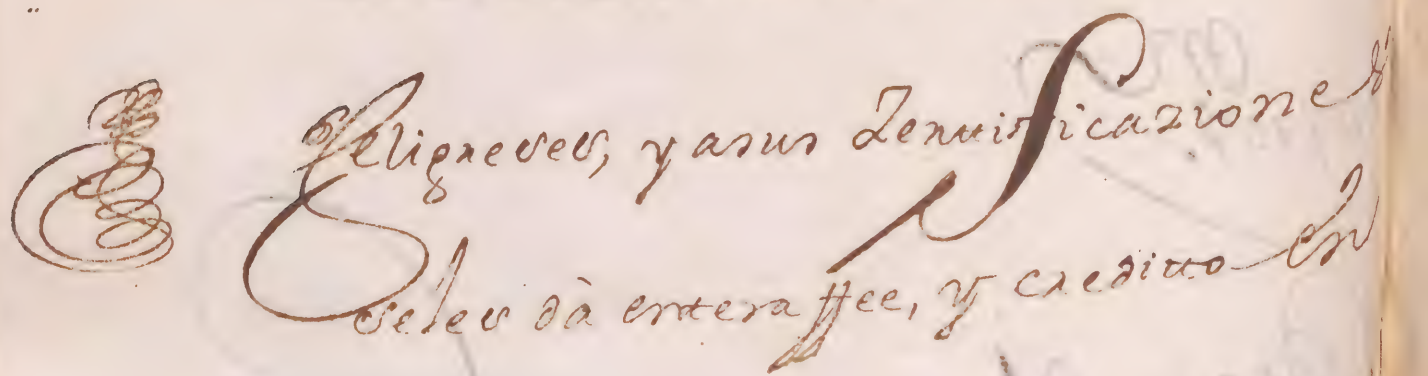 feligreses, y a sus Zerttificaziones
seles dà entera ffee, y creditto en